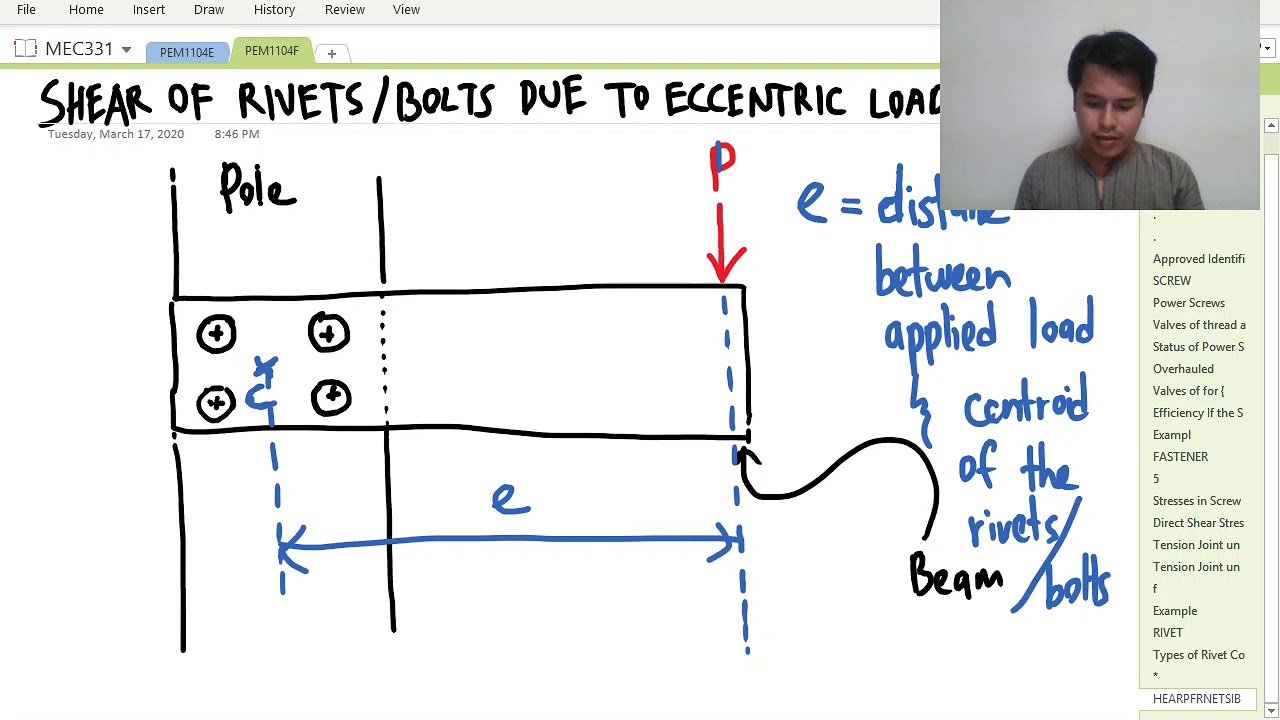 File Home Insert Draw History Review View
MEC331 PEM1104E PEM1104F +
SHEAR OF RIVETS/BOLTS DUE TO ECCENTRIC LOAD
Tuesday, March 17, 2020 8:46 PM
Pole
P
e = distance
between
applied load
centroid
of the
rivets/
bolts
C
e
Beam
Approved Identifi
SCREW
Power Screws
Valves of thread a
Status of Power S
Overhauled
Valves of for {
Efficiency If the S
Exampl
FASTENER
5
Stresses in Screw
Direct Shear Stres
Tension Joint un
Tension Joint un
f
Example
RIVET
Types of Rivet Co
*
HEARPFRNETSIB